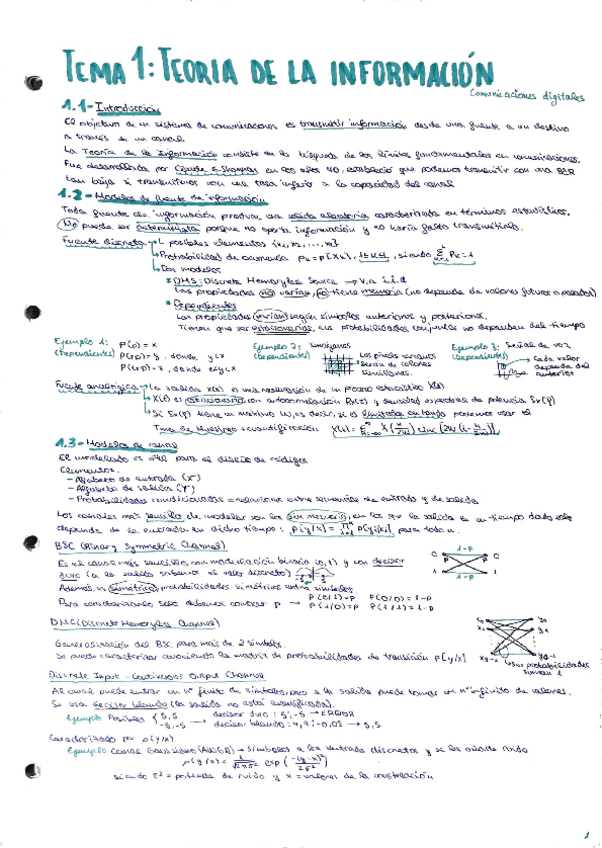 TEMA 1: TEORIA DE LA INFORMACIÓN
Comunicaciones digitales
1.1- Introducción
El objetivo de un sistema de comunicaciones es transmitir información desde una fuente a un destino
a través de un canal.
La Teoría de la Información consiste en la búsqueda de los límites fundamentales en comunicaciones.
Fue desarrollada por Claude E. Shannon en los años 40, estableció que podemos transmitir con una BER
tan baja si transmitimos con una tasa inferior a la capacidad del canal
1.2- Modelos de fuente de información
Toda fuente de información produce una salida aleatoria caracterizada en términos estadísticos.
No puede ser determinista porque no aporta información y no haría falta transmitirla.
Fuente discreta → L posibles elementos {x1, x2, ..., xL}
Probabilidad de ocurrencia Pk = P[Xk], 1≤k≤L, siendo Σ Pk = 1
Dos modelos
* DMS: Discrete Memoryless Source → V.a i.i.d
Las propiedades no varían, no tiene memoria (no depende de valores futuros o pasados)
* Dependientes
Las propiedades varían según símbolos anteriores y posteriores.
Tienen que ser estacionarias, sus probabilidades conjuntas no dependen del tiempo
Ejemplo 1: P(0) = x
(Dependientes) P(1|0) = y, donde y<x
Ejemplo 2: Imágenes
(Dependientes)
Los píxeles cercanos
serán de colores
similares
Ejemplo 3: Señales de voz
(Dependientes)
Cada valor
depende del
anterior
Fuente analógica → La salida x(t) es una realización de un proceso estocástico X(t)
X(t) es estacionario con autocorrelación Rx(τ) y densidad espectral de potencia Sx(f)
Si Sx(f) tiene un máximo W, es decir, si es limitada en banda podemos usar el
Tma de Muestreo + cuantificación
1.3- Modelos de canal
El modelado es útil para el diseño de códigos
Elementos:
- Alfabeto de entrada (X)
- Alfabeto de salida (Y)
- Probabilidades condicionadas o relaciones entre secuencias de entrada y de salida
Los canales más sencillos de modelar son los sin memoria, en los que la salida en un tiempo dado solo
depende de la entrada en dicho tiempo: para todo n.
BSC (Binary Symmetric Channel)
Es el canal más sencillo, con modulación binaria (0,1) y con decisor
duro (a la salida sabemos el valor discreto)
Además, es simétrico, probabilidades simétricas entre símbolos
P(0/1)=P P(0/0)=1-P
Para caracterizarlo solo debemos conocer p → P(1/0)=P P(1/1)=1-P
0 1-P 0
1 1-P 1
DMC (Discrete Memoryless Channel)
Generalización del BSC para más de 2 símbolos.
Se puede caracterizar conociendo la matriz de probabilidades de transición P[y/x]
Sus probabilidades
suman 1
Discrete Input - Continuous Output Channel
Al canal puede entrar un nº finito de símbolos, pero a la salida puede tomar un nº infinito de valores.
Se usa decisor blando (la salida no está cuantificada).
Ejemplo Posibles decisor duro: 5, -5 → ERROR
decisor blando: 4,9, -0,03 → 5,5
Caracterizado por p(y/x)
Ejemplo Canal Gaussiano (AWGN) → Símbolos a la entrada discretos y se les añade ruido
siendo σ² = potencia de ruido y x = valores de la constelación
1